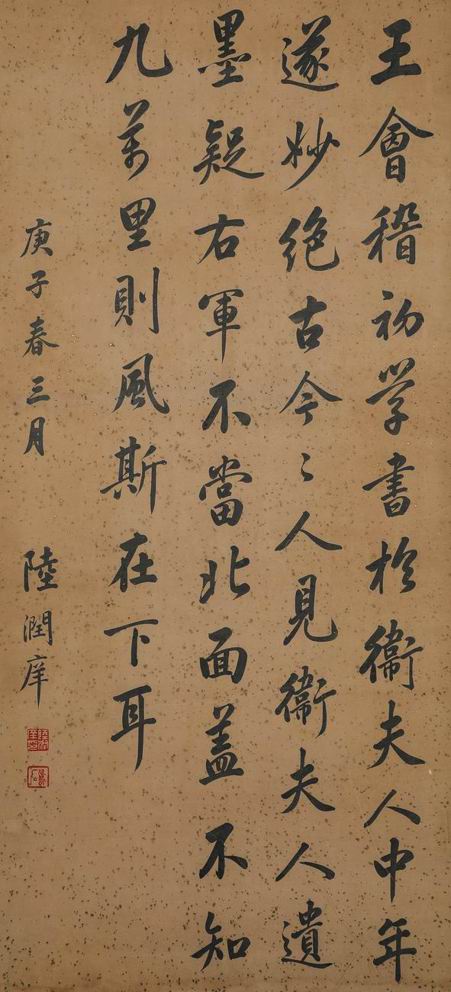 王會稽初学書於衞夫人中年
遂妙絕古今〻人見衞夫人遺
墨疑右軍不當北面蓋不知
九萬里則風斯在下耳
庚子春三月 陸潤庠